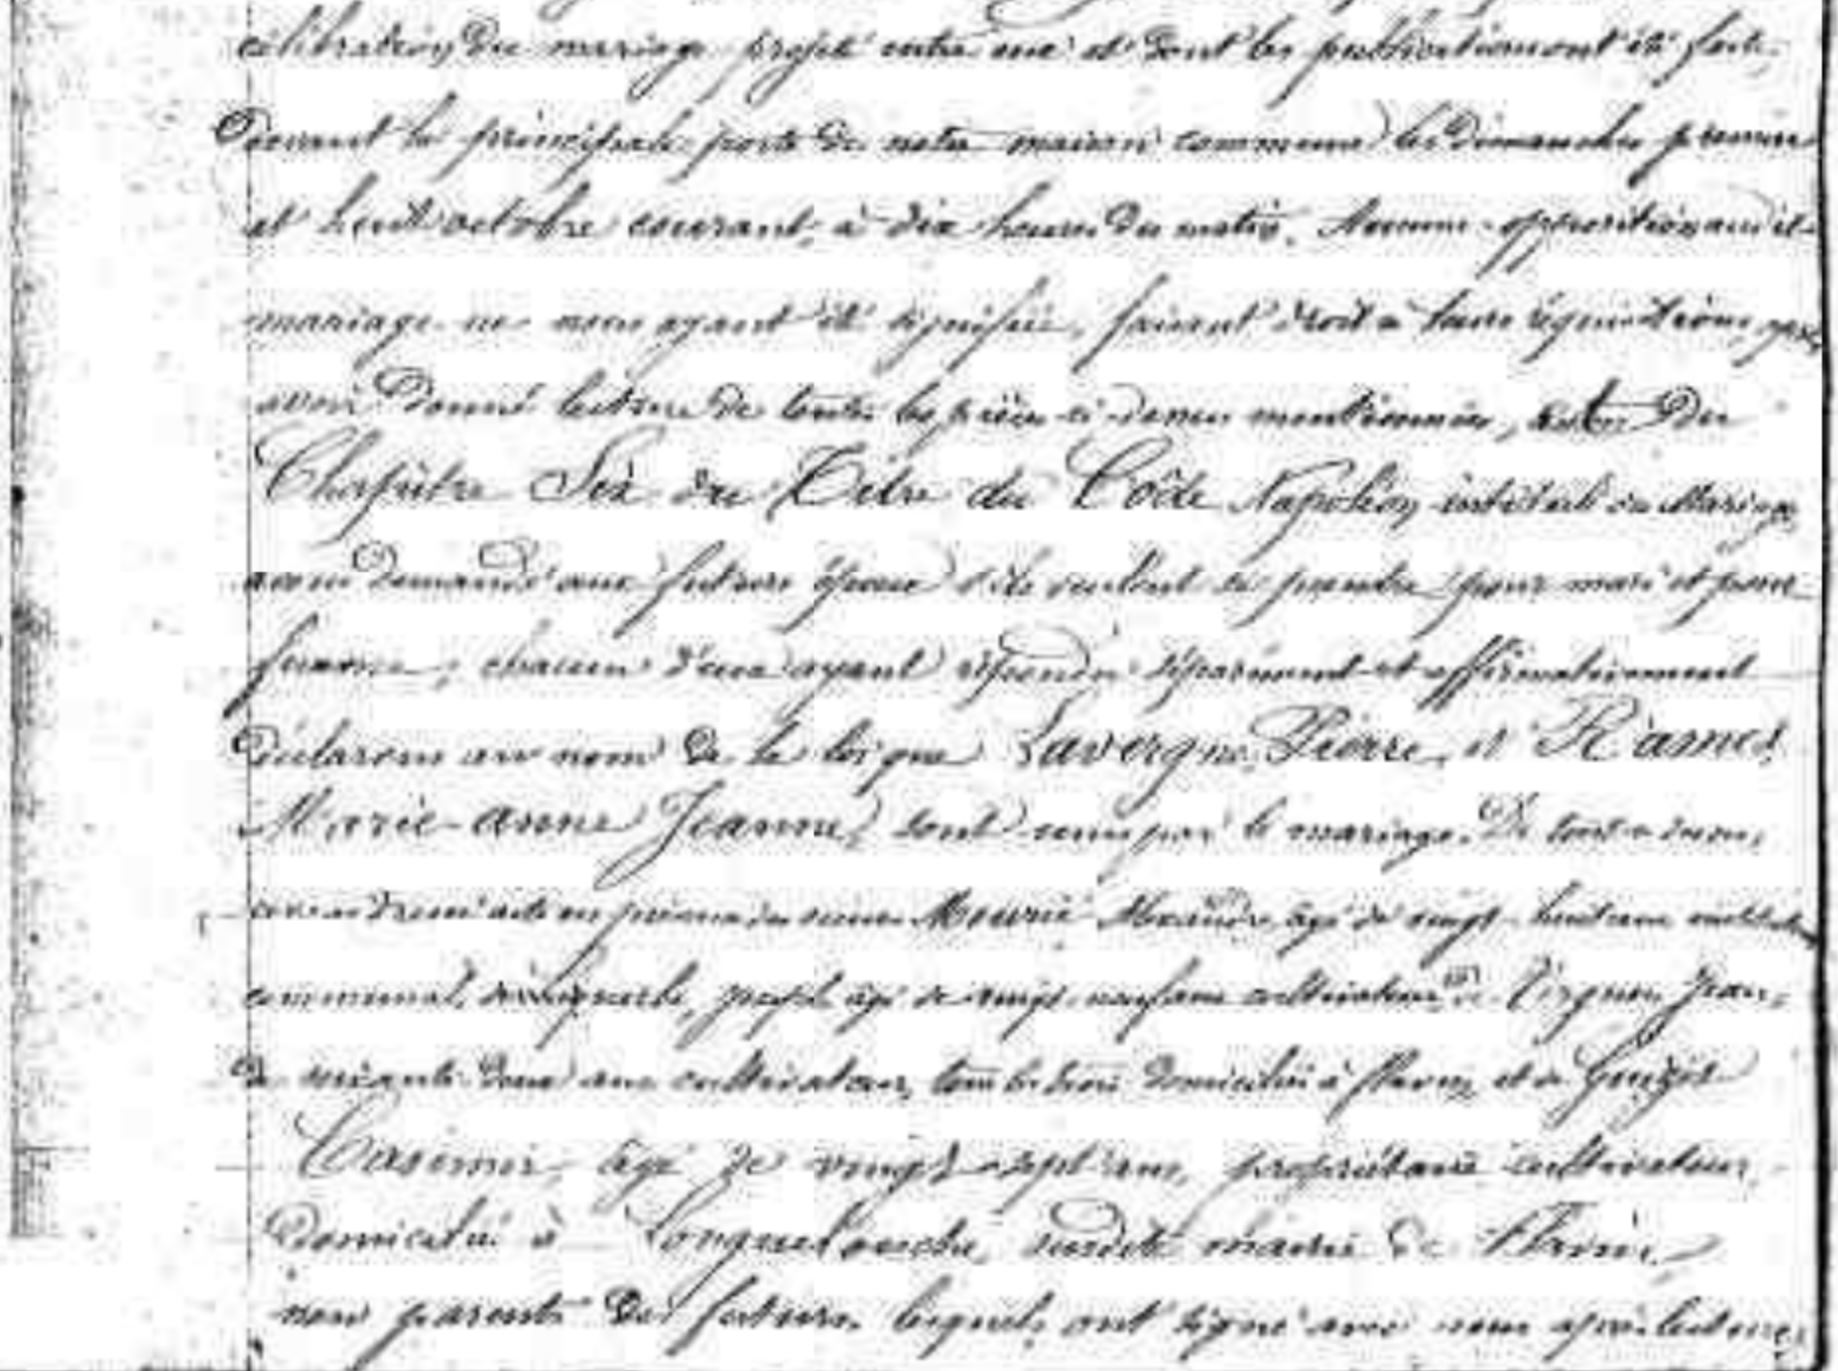 célébration du mariage projeté entre eux et dont les publications ont été faites
Devant la principale porte de notre maison commune les Dimanches premier
et huit octobre courant, à dix heures du matin. Aucune opposition audit
mariage ne nous ayant été signifiée, faisant droit à leurs réquisitions, après
avoir Donné lecture de toutes les pièces ci-dessus mentionnées, et Du
Chapitre Six du Titre du Code Napoléon intitulé du Mariage
avons Demandé aux futurs époux s'ils veulent se prendre pour mari et pour
femme, chacun d'eux ayant répondu séparément et affirmativement
Déclarons au nom De la loi que Lavergne Pierre et Ramel
Marie-anne Jeanne sont unis par le mariage. De tout ce dessus,
avons Dressé acte en présence des sieurs Mourié Alexandre, âgé de vingt-huit ans
communal, Joseph âgé de vingt-neuf ans cultivateur, Jean
de soixante-deux ans cultivateur, tous les trois Domiciliés à et
Casimir, âgé de vingt-sept ans, propriétaire cultivateur,
Domicilié à susdite mairie de
non parents Des futurs, lesquels ont signé avec nous après lecture,